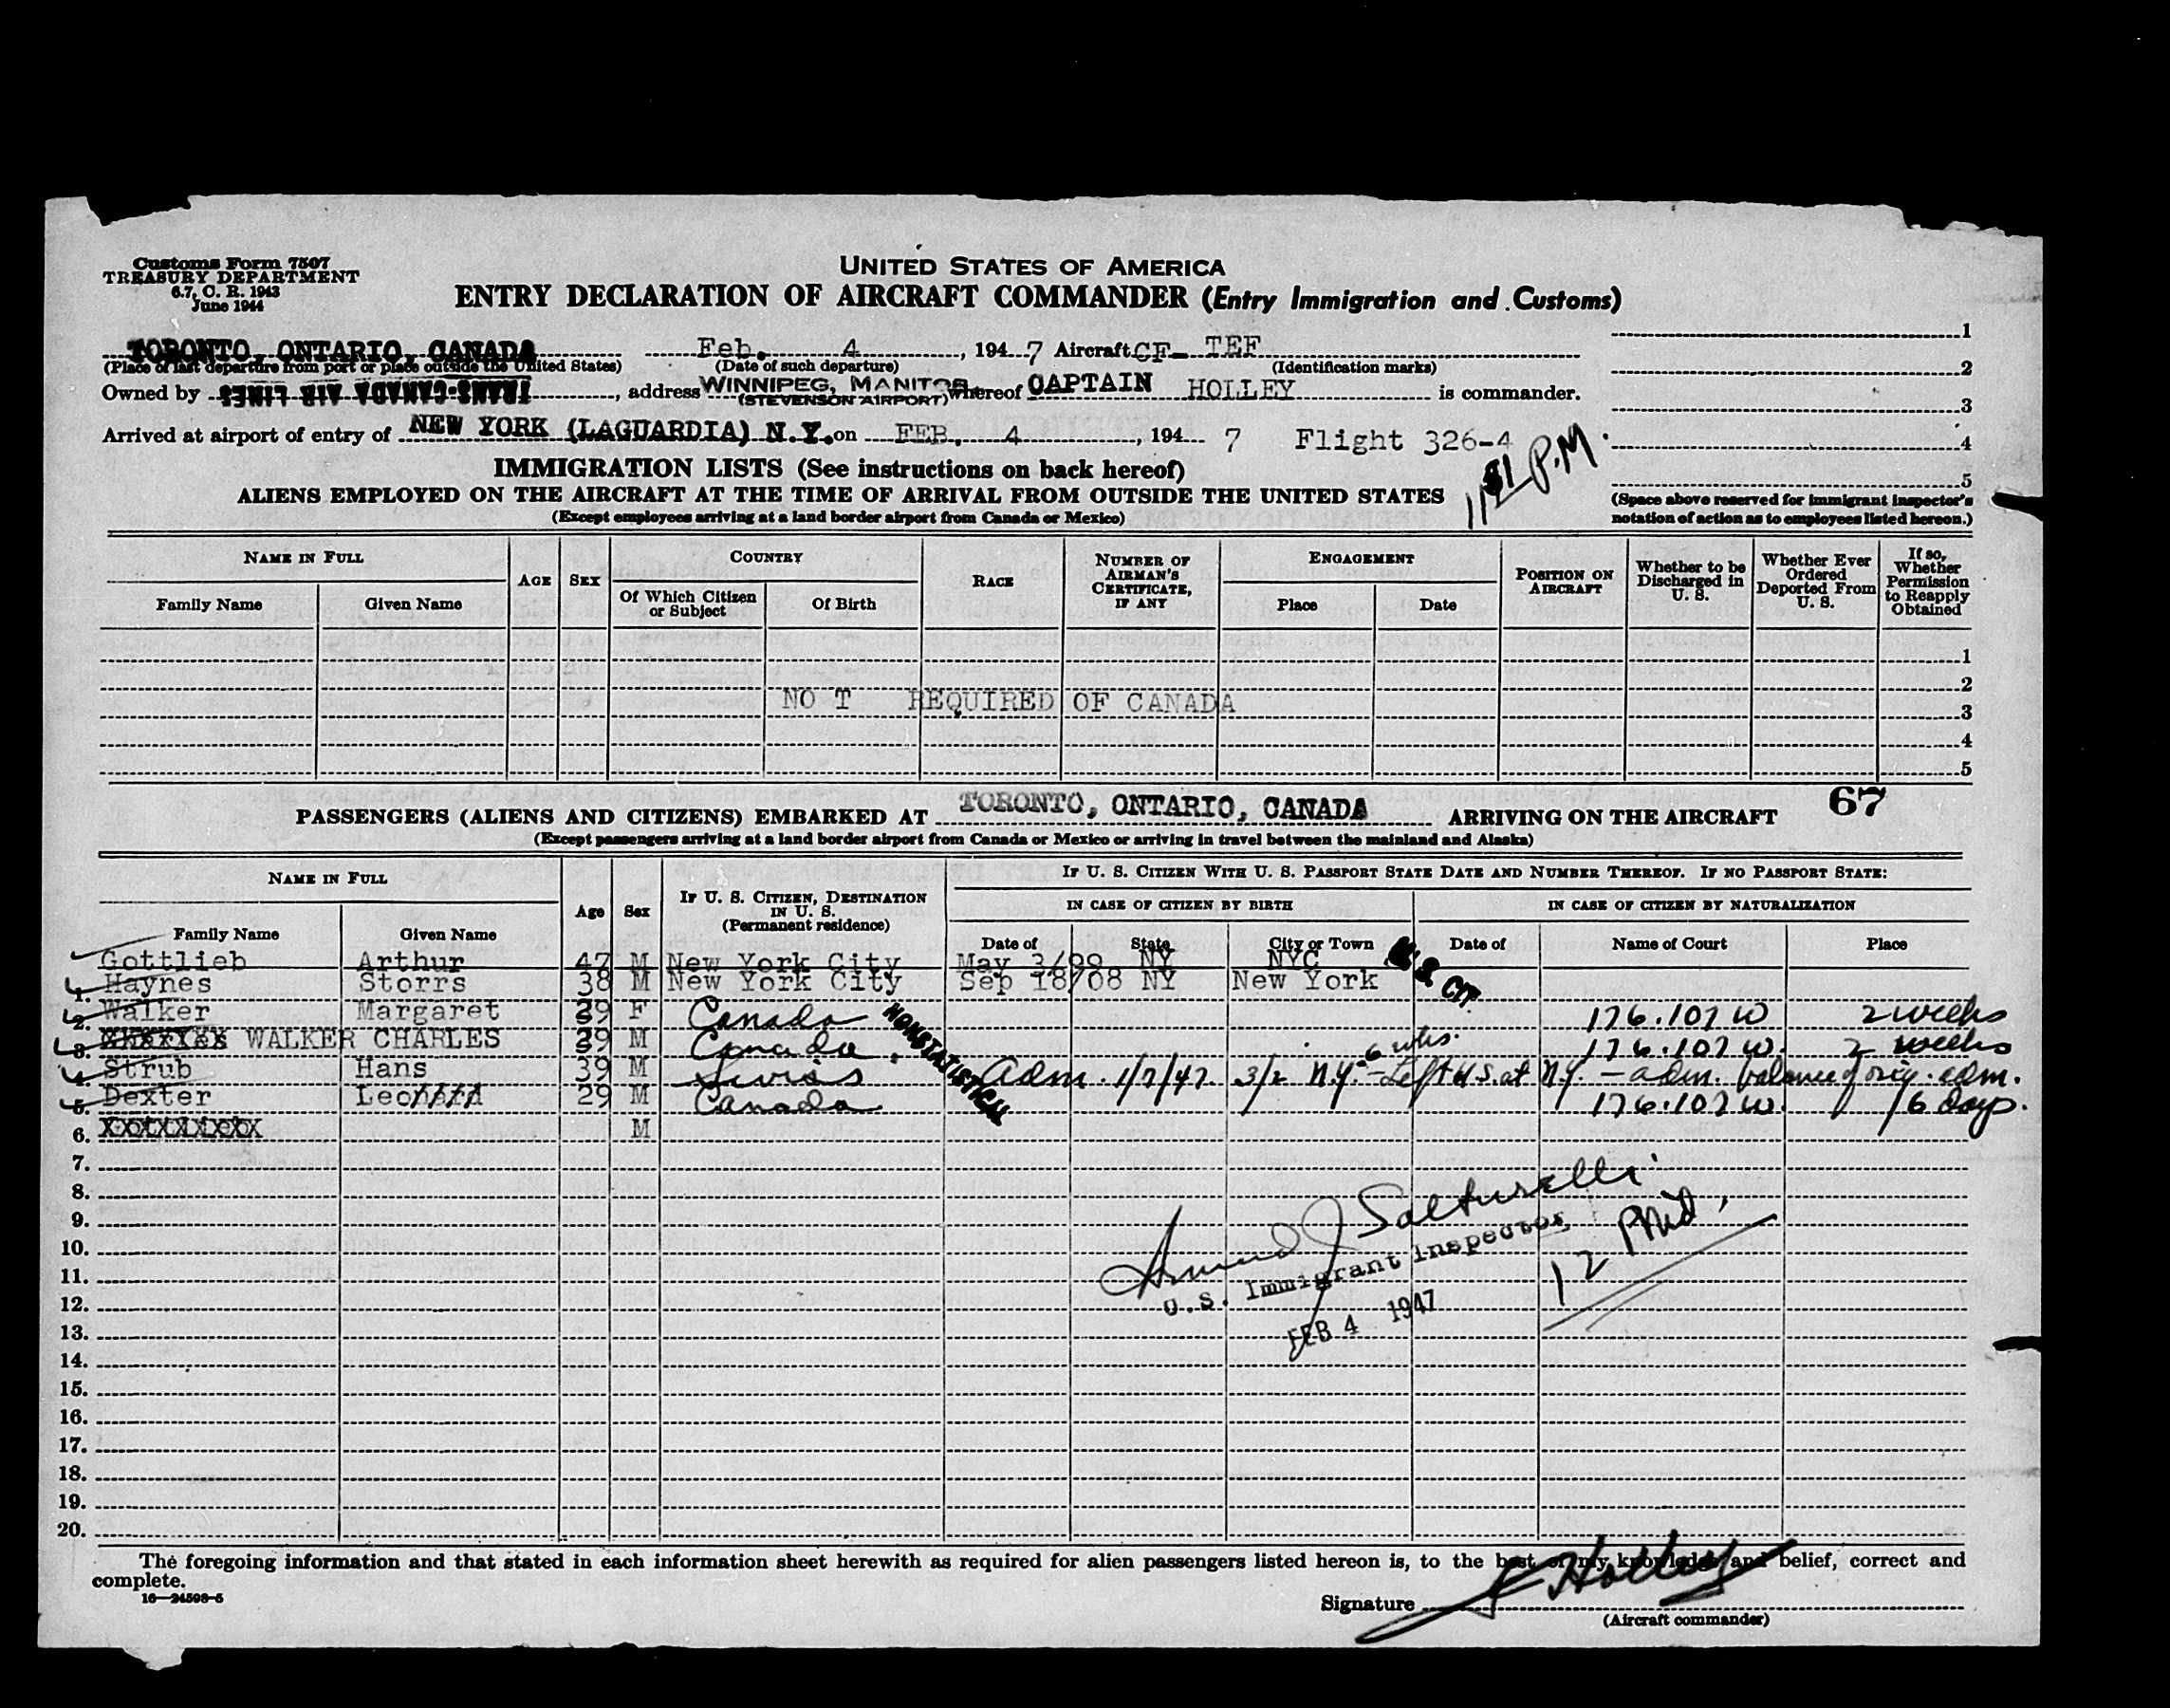 Customs Form 7507
TREASURY DEPARTMENT
6.7, C. R. 1943
June 1944
UNITED STATES OF AMERICA
ENTRY DECLARATION OF AIRCRAFT COMMANDER (Entry Immigration and Customs)
TORONTO, ONTARIO, CANADA Feb. 4, 1947 Aircraft CF- TEF
(Place of last departure from port or place outside the United States) (Date of such departure) (Identification marks)
Owned by TRANS-CANADA AIR LINES, address WINNIPEG, MANITOB whereof CAPTAIN HOLLEY is commander.
(STEVENSON AIRPORT)
Arrived at airport of entry of NEW YORK (LAGUARDIA) N.Y. on FEB. 4, 194 7 Flight 326-4
P.M.
1
2
3
4
5
(Space above reserved for immigrant inspector's notation of action as to employees listed hereon.)
IMMIGRATION LISTS (See instructions on back hereof)
ALIENS EMPLOYED ON THE AIRCRAFT AT THE TIME OF ARRIVAL FROM OUTSIDE THE UNITED STATES
(Except employees arriving at a land border airport from Canada or Mexico)
NAME IN FULL
Family Name Given Name
AGE SEX
COUNTRY
Of Which Citizen or Subject Of Birth
RACE
NUMBER OF AIRMAN'S CERTIFICATE, IF ANY
ENGAGEMENT
Place Date
POSITION ON AIRCRAFT
Whether to be Discharged in U. S.
Whether Ever Ordered Deported From U. S.
If so, Whether Permission to Reapply Obtained
1
2
NO T REQUIRED OF CANADA
3
4
5
PASSENGERS (ALIENS AND CITIZENS) EMBARKED AT TORONTO, ONTARIO, CANADA ARRIVING ON THE AIRCRAFT 67
(Except passengers arriving at a land border airport from Canada or Mexico or arriving in travel between the mainland and Alaska)
NAME IN FULL
Family Name Given Name
Age Sex
IF U. S. CITIZEN, DESTINATION IN U. S.
(Permanent residence)
IF U. S. CITIZEN WITH U. S. PASSPORT STATE DATE AND NUMBER THEREOF. IF NO PASSPORT STATE:
IN CASE OF CITIZEN BY BIRTH
IN CASE OF CITIZEN BY NATURALIZATION
Date of State City or Town Date of Name of Court Place
Gottlieb Arthur 47 M New York City May 3/99 NY NYC
1. Haynes Storrs 38 M New York City Sep 18/08 NY New York
U.S. CIT.
2. Walker Margaret 39 F Canada 176.107 W 2 weeks
3. WALKER CHARLES 39 M Canada 176.107 W. 2 weeks
NONSTATISTICAL
6 wks.
4. Strub Hans 39 M Swiss Adm. 1/7/47 3/2 N.Y. - Left U.S. at N.Y. - adm. balance of orig. adm.
5. Dexter Leo 29 M Canada 176.107 W. 6 days.
6. M
7.
8.
9.
10.
11.
12.
13.
14.
15.
16.
17.
18.
19.
20.
U.S. Immigrant Inspector
FEB 4 1947
12
The foregoing information and that stated in each information sheet herewith as required for alien passengers listed hereon is, to the best of my knowledge and belief, correct and
complete.
16—24598-5
Signature Holley
(Aircraft commander)